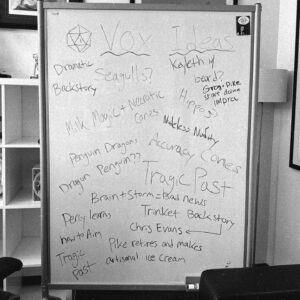 Vox Ideas
Dramatic
Backstory
Seagulls?
Kaylethy
beard?
Grog + Pike
start doing
improv
Milk Magic + Necrotic
Cones
Hippos?
Noteless Nudity
Penguin Dragons
Dragon Penguin??
Accuracy Cones
Tragic Past
Brain + Storm = Bad news
Percy learns
how to Aim
Trinket Backstory
Chris Evans
Tragic
Past
Pike retires and makes
artisanal ice cream